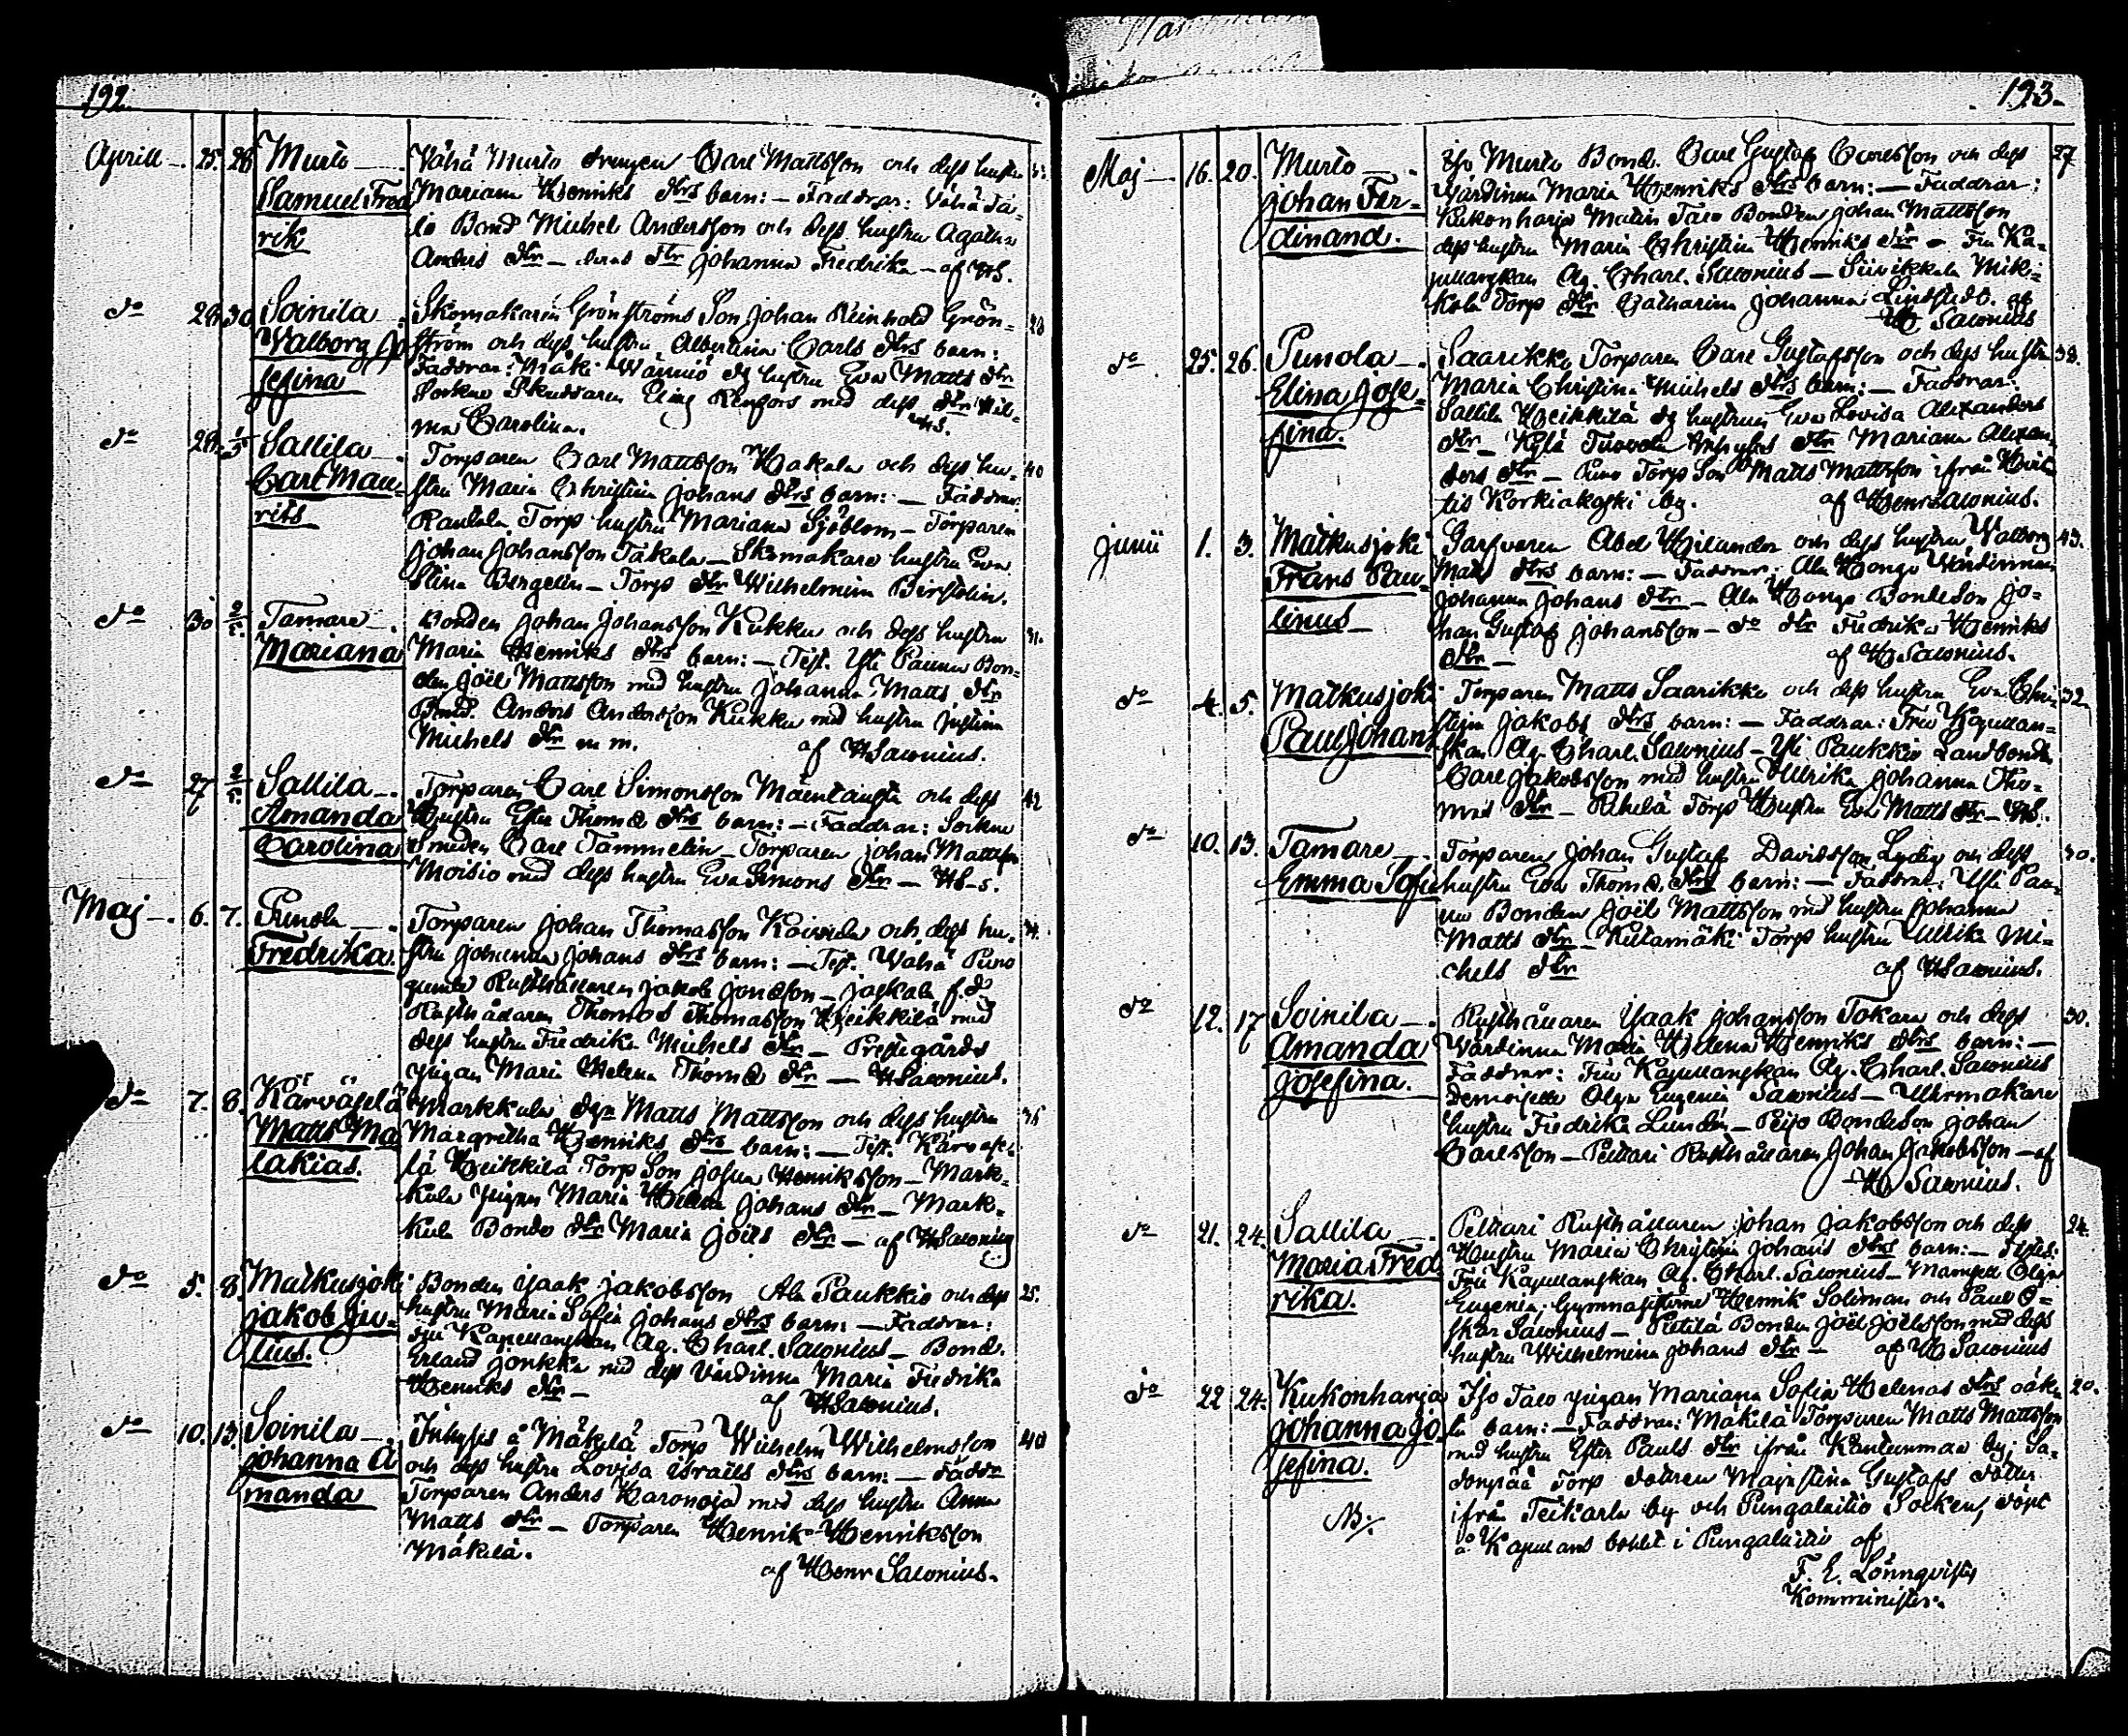 192.
Aprill 25. 28 Murto
Samuel Fred
rik
Vähä Murto drengen Carl Mattsson och dess hustru
Mariana Henriks dtrs barn: — Faddrar: Vähä
Bond Michel Andersson och dess hustru Agatha
Anders dtr — deras dtr Johanna Fredrika — af HS.
do 28 30 Soinila
Valborg Jo
sefina
Skomakaren Grönströms Son Johan Reinhold Grön-
ström och dess hustru Albertina Carls dtrs barn:
Faddrar: Mäki hustru Eva Matts dtr
Sockne Skreddaren Renfors med dess dtr Wil-
ma Carolina. HS.
do 28 1/5 Sallila 40
Carl Mau-
rits
Torparen Carl Mattsson Hakala och dess hu-
stru Maria Christina Johans dtrs barn: — Faddrar:
Rautala Torp hustru Mariana Sjöblom — Torparen
Johan Johansson Täkala — Skomakare hustru Eva
Stina Bergelin — Torp dtr Wilhelmina
do 30 2/5 Tamare 31.
Mariana
Bonden Johan Johansson Kukku och dess hustru
Maria Henriks dtrs barn: — Test. Yli Paunu Bon-
den Joël Mattsson med hustru Johanna Matts dtr
Bond. Anders Andersson Kukku med hustru Justina
Michels dtr m. m. af HSalonius.
do 27 2/5 Sallila 42
Amanda
Carolina
Torparen Carl Simonsson och dess
Hustru Ester Thomæ dtrs barn: — Faddrar: Sockne
Smeden Carl Tammelin — Torparen Johan Mattsson
Moisio med dess hustru Eva Simons dtr — HS—s.
Maj 6. 7. Punola
Fredrika.
Torparen Johan Thomasson Koivula och dess hu-
stru Johanna Johans dtrs barn: — Test. Wähä Puno
gamla Rusthållaren Jakob Jonasson — f. d.
Rusthållaren Thomas Thomasson Heikkilä med
dess hustru Fredrika Michels dtr — Prestegårds
pigan Maria Helena Thomæ dtr — HSalonius.
do 7. 8. Kärväselä 35
Matts Ma
lakias.
Markkula Matts Mattsson och dess hustru
Margretha Henriks dtrs barn: — Test. Kärväse-
lä Heikkilä Torp Son Josua Henriksson — Mark-
kula pigan Maria Johans dtr — Mark-
kula Bonde dtr Maria Joëls dtr — af HSalonius
do 5. 8. Matkusjoki 25.
Jakob Ju-
lius.
Bonden Isaak Jakobsson Ala Paukkio och dess
hustru Maria Sofia Johans dtrs barn: — Faddrar:
Fru Kapellanskan Ag. Charl. Salonius — Bond.
Erland Jonkka med dess Värdinna Maria Fredrika
Henriks dtr — af HSalonius.
do 10. 13. Soinila 40
Johanna A
manda
Inhyses å Mäkelä Torp Wilhelm Wilhelmsson
och dess hustru Lovisa Israels dtrs barn: — Faddr
Torparen Anders Karonoja med dess hustru Anna
Matts dtr — Torparen Henrik Henriksson
Mäkelä.
af Henr Salonius.
193.
Maj 16. 20. Murto 27
Johan Fer-
dinand.
Iso Murto Bond. Carl Gustaf Carlsson och dess
Värdinna Maria Henriks dtrs barn: — Faddrar:
Kukonharja Bonden Johan Mattsson
dess hustru Maria Christina Henriks dtr — Fru Ka-
pellanskan Ag. Charl. Salonius — Siivikkala Mik-
kola Torp dtr Catharina Johanna Lindstedt. af
H Salonius
do 25. 26. Punola 38.
Elina Jose-
fina.
Saarikko Torparen Carl Gustafsson och dess hustru
Maria Christina Michels dtrs barn: — Faddrar:
Sallila Heikkilä hustrun Eva Lovisa Alexanders
dtr — Kylä Inhyses dtr Mariana Alexan-
ders dtr — Puno Torp Son Matts Mattsson ifrån Hvit-
tis Korkiakoski by. af Henr Salonius.
Junii 1. 3. Matkusjoki 43.
Frans Pau-
linus
Garfvaren Abel Hilander och dess hustru Valborg
Matts dtrs barn: — Faddrar: Ala Hongo Värdinnan
Johanna Johans dtr — Ala Hongo Bondeson Jo-
han Gustaf Johansson — do dtr Fredrika Henriks
dtr — af HSalonius.
do 4. 5. Matkusjoki 32.
Paul Johan
Torparen Matts Saarikko och dess hustru Eva Chri-
stina Jakobs dtrs barn: — Faddrar: Fru Kapellan-
skan Ag. Charl. Salonius — Yli Paukkio Landbonden
Carl Jakobsson med hustru Ulrika Johanna Tho-
mas dtr — Torp Hustru Eva Matts dtr — HS.
do 10. 13. Tamare 30.
Emma Sofia
Torparen Johan Gustaf Davidsson och dess
hustru Eva Thomæ dtrs barn: — Faddrar: Yli Pau-
nu Bonden Joël Mattsson med hustru Johanna
Matts dtr — Torp hustru Ulrika Mi-
chels dtr af HSalonius.
do 12. 17 Soinila 30.
Amanda
Josefina.
Rusthållaren Isaak Johansson Tokari och dess
Värdinna Maria Helena Henriks dtrs barn: —
Faddrar: Fru Kapellanskan Ag. Charl. Salonius
Demoiselle Olga Eugenia Salonius — Uhrmakare
hustru Fredrika Lundén — Peijo Bondeson Johan
Carlsson — Pelttari Rusthållaren Johan Jakobsson — af
H Salonius.
do 21. 24. Sallila 24.
Maria Fred
rika.
Pelttari Rusthållaren Johan Jakobsson och dess
Hustru Maria Christina Johans dtrs barn: — Testes:
Fru Kapellanskan Ag. Charl. Salonius — Mamsell Olga
Eugenia; Gymnasisterne Henrik Soliman och Paul O-
skar Salonius — Bonden Joël Joëlsson med dess
hustru Wilhelmina Johans dtr — af H Salonius
do 22 24. Kukonharja 20.
Johanna Jo
sefina.
NB:
Iso Talo pigan Mariana Sofia Helenas dtrs oäk-
ta barn: — Faddrar: Mäkilä Torparen Matts Mattsson
med hustru Ester Pauls dtr ifrån Kanteenmaa by; Sa-
Torp dottren Maja Stina Gustafs dotter
ifrån Teikarla by och Pungalaitio Socken, döpt
å Kapellans bohlet i Pungalaitio af
F. E. Lönnqvist
Komminister.